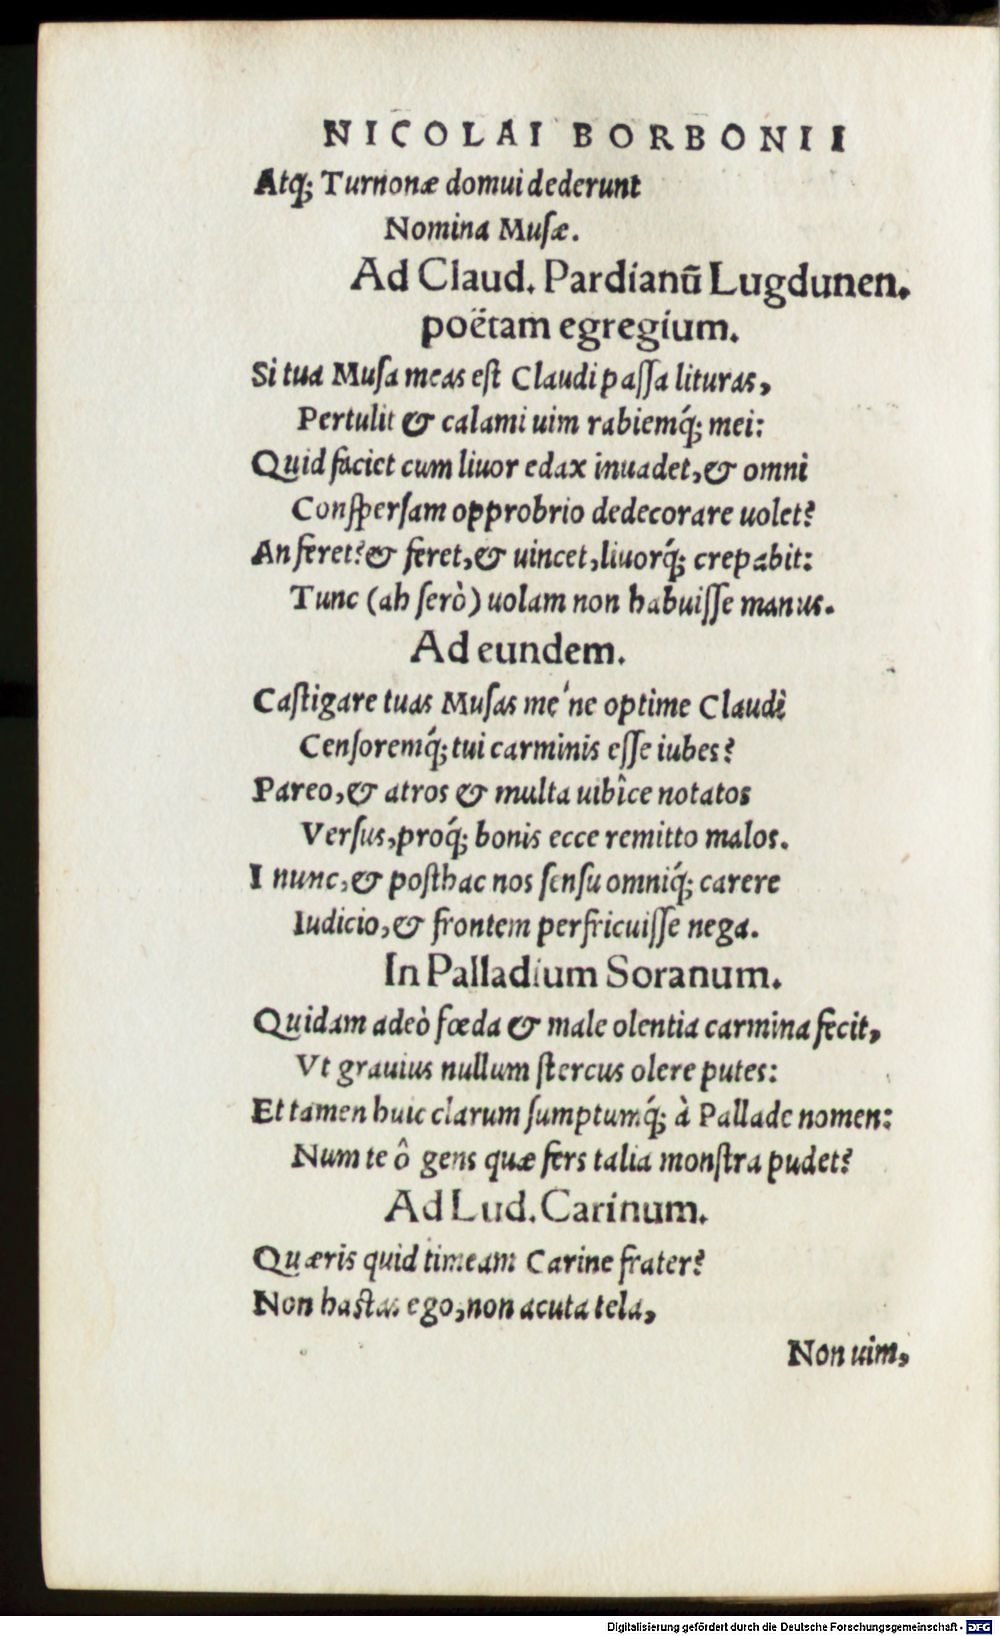 NICOLAI BORBONII
Atq́; Turnonæ domui dederunt
Nomina Muſæ.
Ad Claud. Pardianũ Lugdunen.
poëtam egregium.
Si tua Muſa meas eſt Claudi paſſa lituras,
Pertulit & calami uim rabiemq́; mei:
Quid faciet cum liuor edax inuadet, & omni
Conſperſam opprobrio dedecorare uolet?
An feret? & feret, & uincet, liuorq́; crepabit:
Tunc (ah ſerò) uolam non habuiſſe manus.
Ad eundem.
Caſtigare tuas Muſas me'ne optime Claudi
Cenſoremq́; tui carminis eſſe iubes?
Pareo, & atros & multa uibîce notatos
Verſus, proq́; bonis ecce remitto malos.
I nunc, & poſthac nos ſenſu omniq́; carere
Iudicio, & frontem perfricuiſſe nega.
In Palladium Soranum.
Quidam adeò fœda & male olentia carmina fecit,
Vt grauius nullum ſtercus olere putes:
Et tamen huic clarum ſumptumq́; à Pallade nomen:
Num te ô gens quæ fers talia monſtra pudet?
Ad Lud. Carinum.
Quæris quid timeam Carine frater?
Non haſtas ego, non acuta tela,
Non uim,
Digitalisierung gefördert durch die Deutsche Forschungsgemeinschaft - DFG